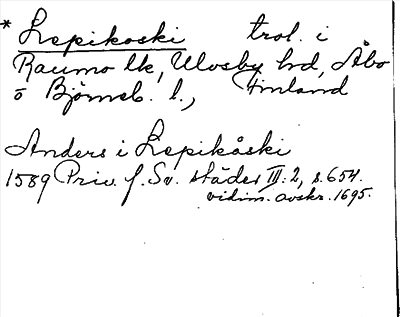 * Lepikoski trol. i
Raumo lk, Ulvsby hd, Åbo
o Björneb. l., Finland
Anders i Lepikåski
1589 Priv. f. Sv. städer III:2, s. 654.
vidim. avskr. 1695.